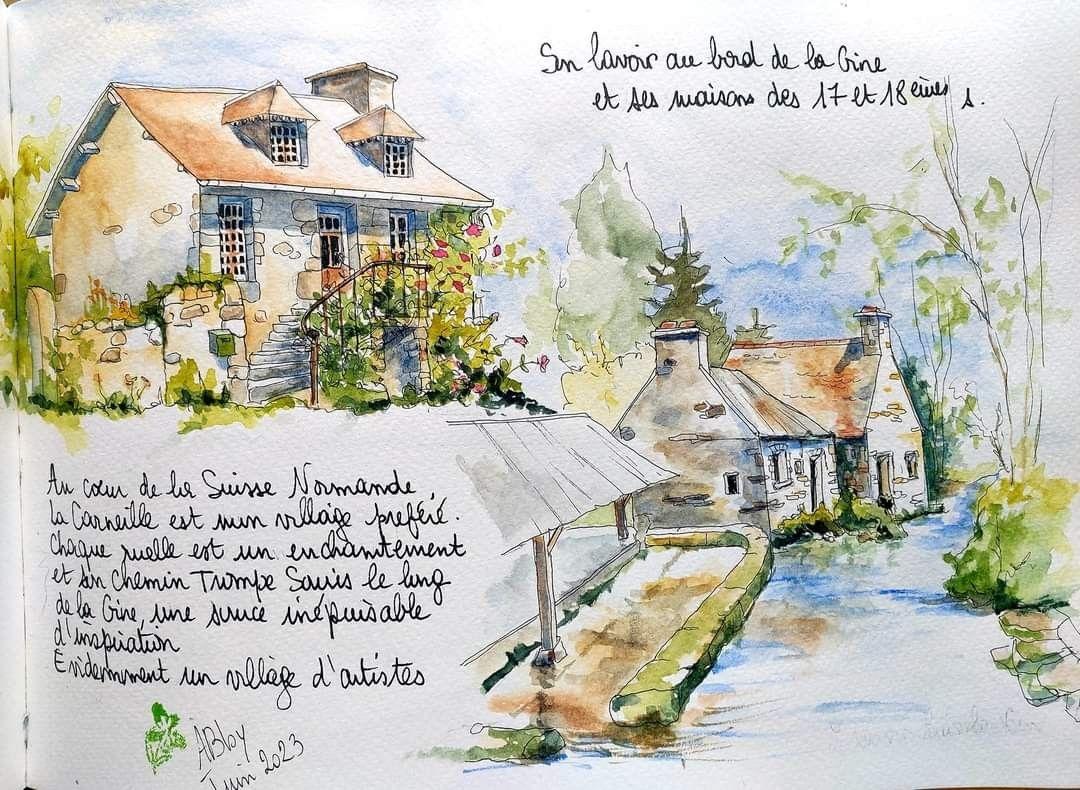 Son lavoir au bord de la Gine
et ses maisons des 17 et 18 èmes s.
Au cœur de la Suisse Normande,
La Carneille est mon village préféré.
Chaque ruelle est un enchantement
et son chemin Trompe Souris le long
de la Gine, une source inépuisable
d'inspiration
Évidemment un village d'artistes
ABby
Juin 2023